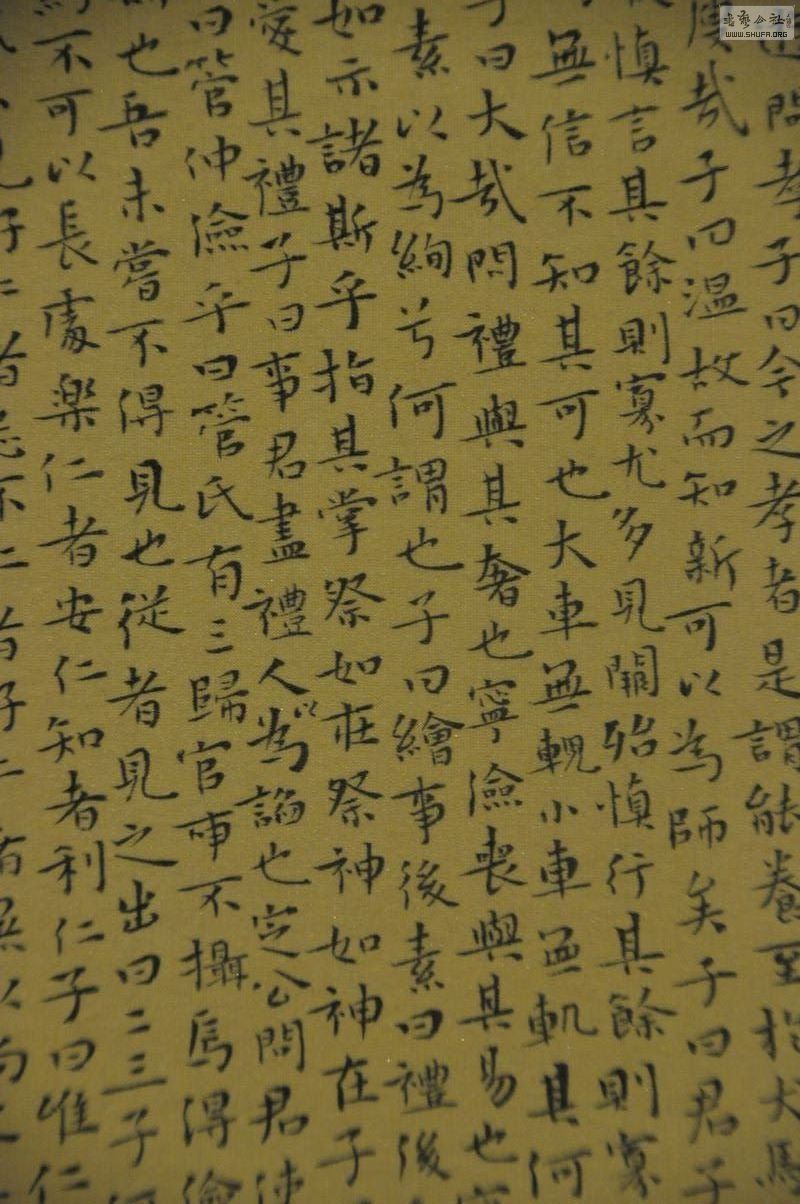 問孝子曰今之孝者是謂能養至於犬馬
廋哉子曰温故而知新可以為師矣子曰君子
慎言其餘則寡尤多見闕殆慎行其餘則寡
無信不知其可也大車無輗小車無軏其何
子曰大哉問禮與其奢也寧儉喪與其易也寧
素以為絢兮何謂也子曰繪事後素曰禮後
如示諸斯乎指其掌祭如在祭神如神在子
愛其禮子曰事君盡禮人以為諂也定公問君使
曰管仲儉乎曰管氏有三歸官事不攝焉得儉
也吾未嘗不得見也從者見之出曰二三子何
不可以長處樂仁者安仁知者利仁子曰惟仁
書藝公社
WWW.SHUFA.ORG